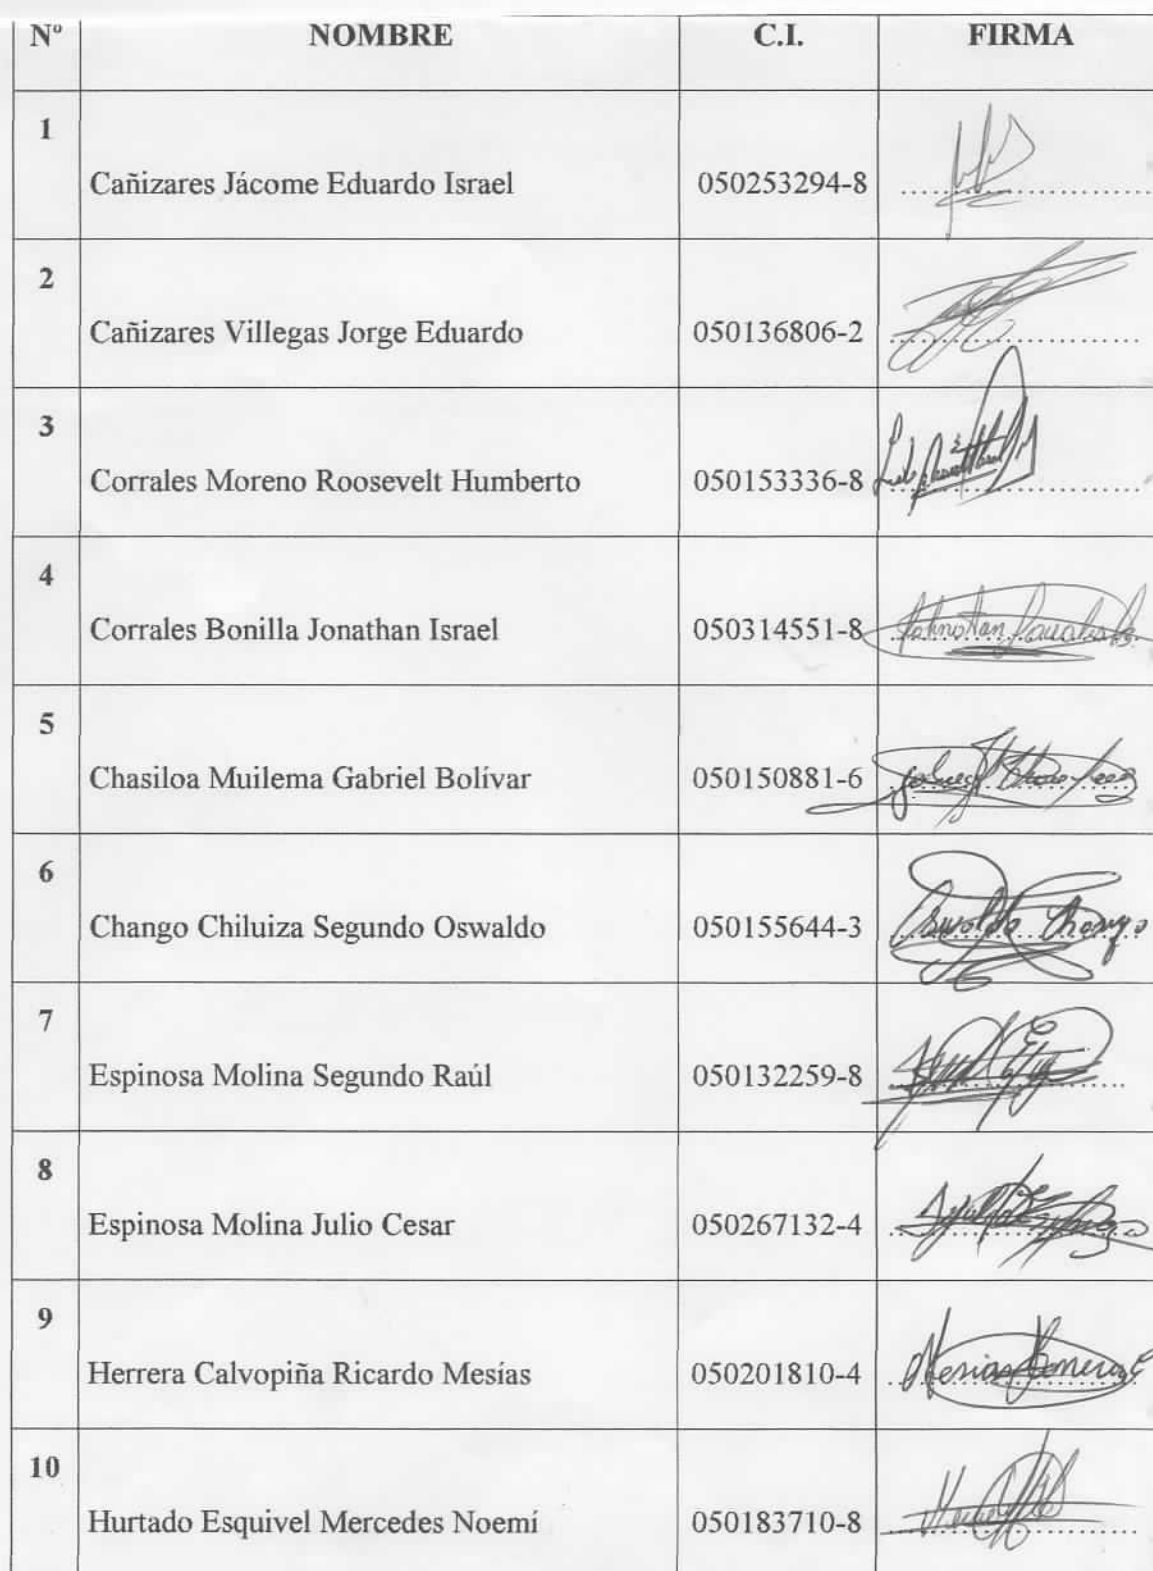 Nº NOMBRE C.I. FIRMA
1
Cañizares Jácome Eduardo Israel 050253294-8
2
Cañizares Villegas Jorge Eduardo 050136806-2
3
Corrales Moreno Roosevelt Humberto 050153336-8
4
Corrales Bonilla Jonathan Israel 050314551-8
5
Chasiloa Muilema Gabriel Bolívar 050150881-6
6
Chango Chiluiza Segundo Oswaldo 050155644-3 Oswaldo Chango
7
Espinosa Molina Segundo Raúl 050132259-8
8
Espinosa Molina Julio Cesar 050267132-4
9
Herrera Calvopiña Ricardo Mesías 050201810-4
10
Hurtado Esquivel Mercedes Noemí 050183710-8